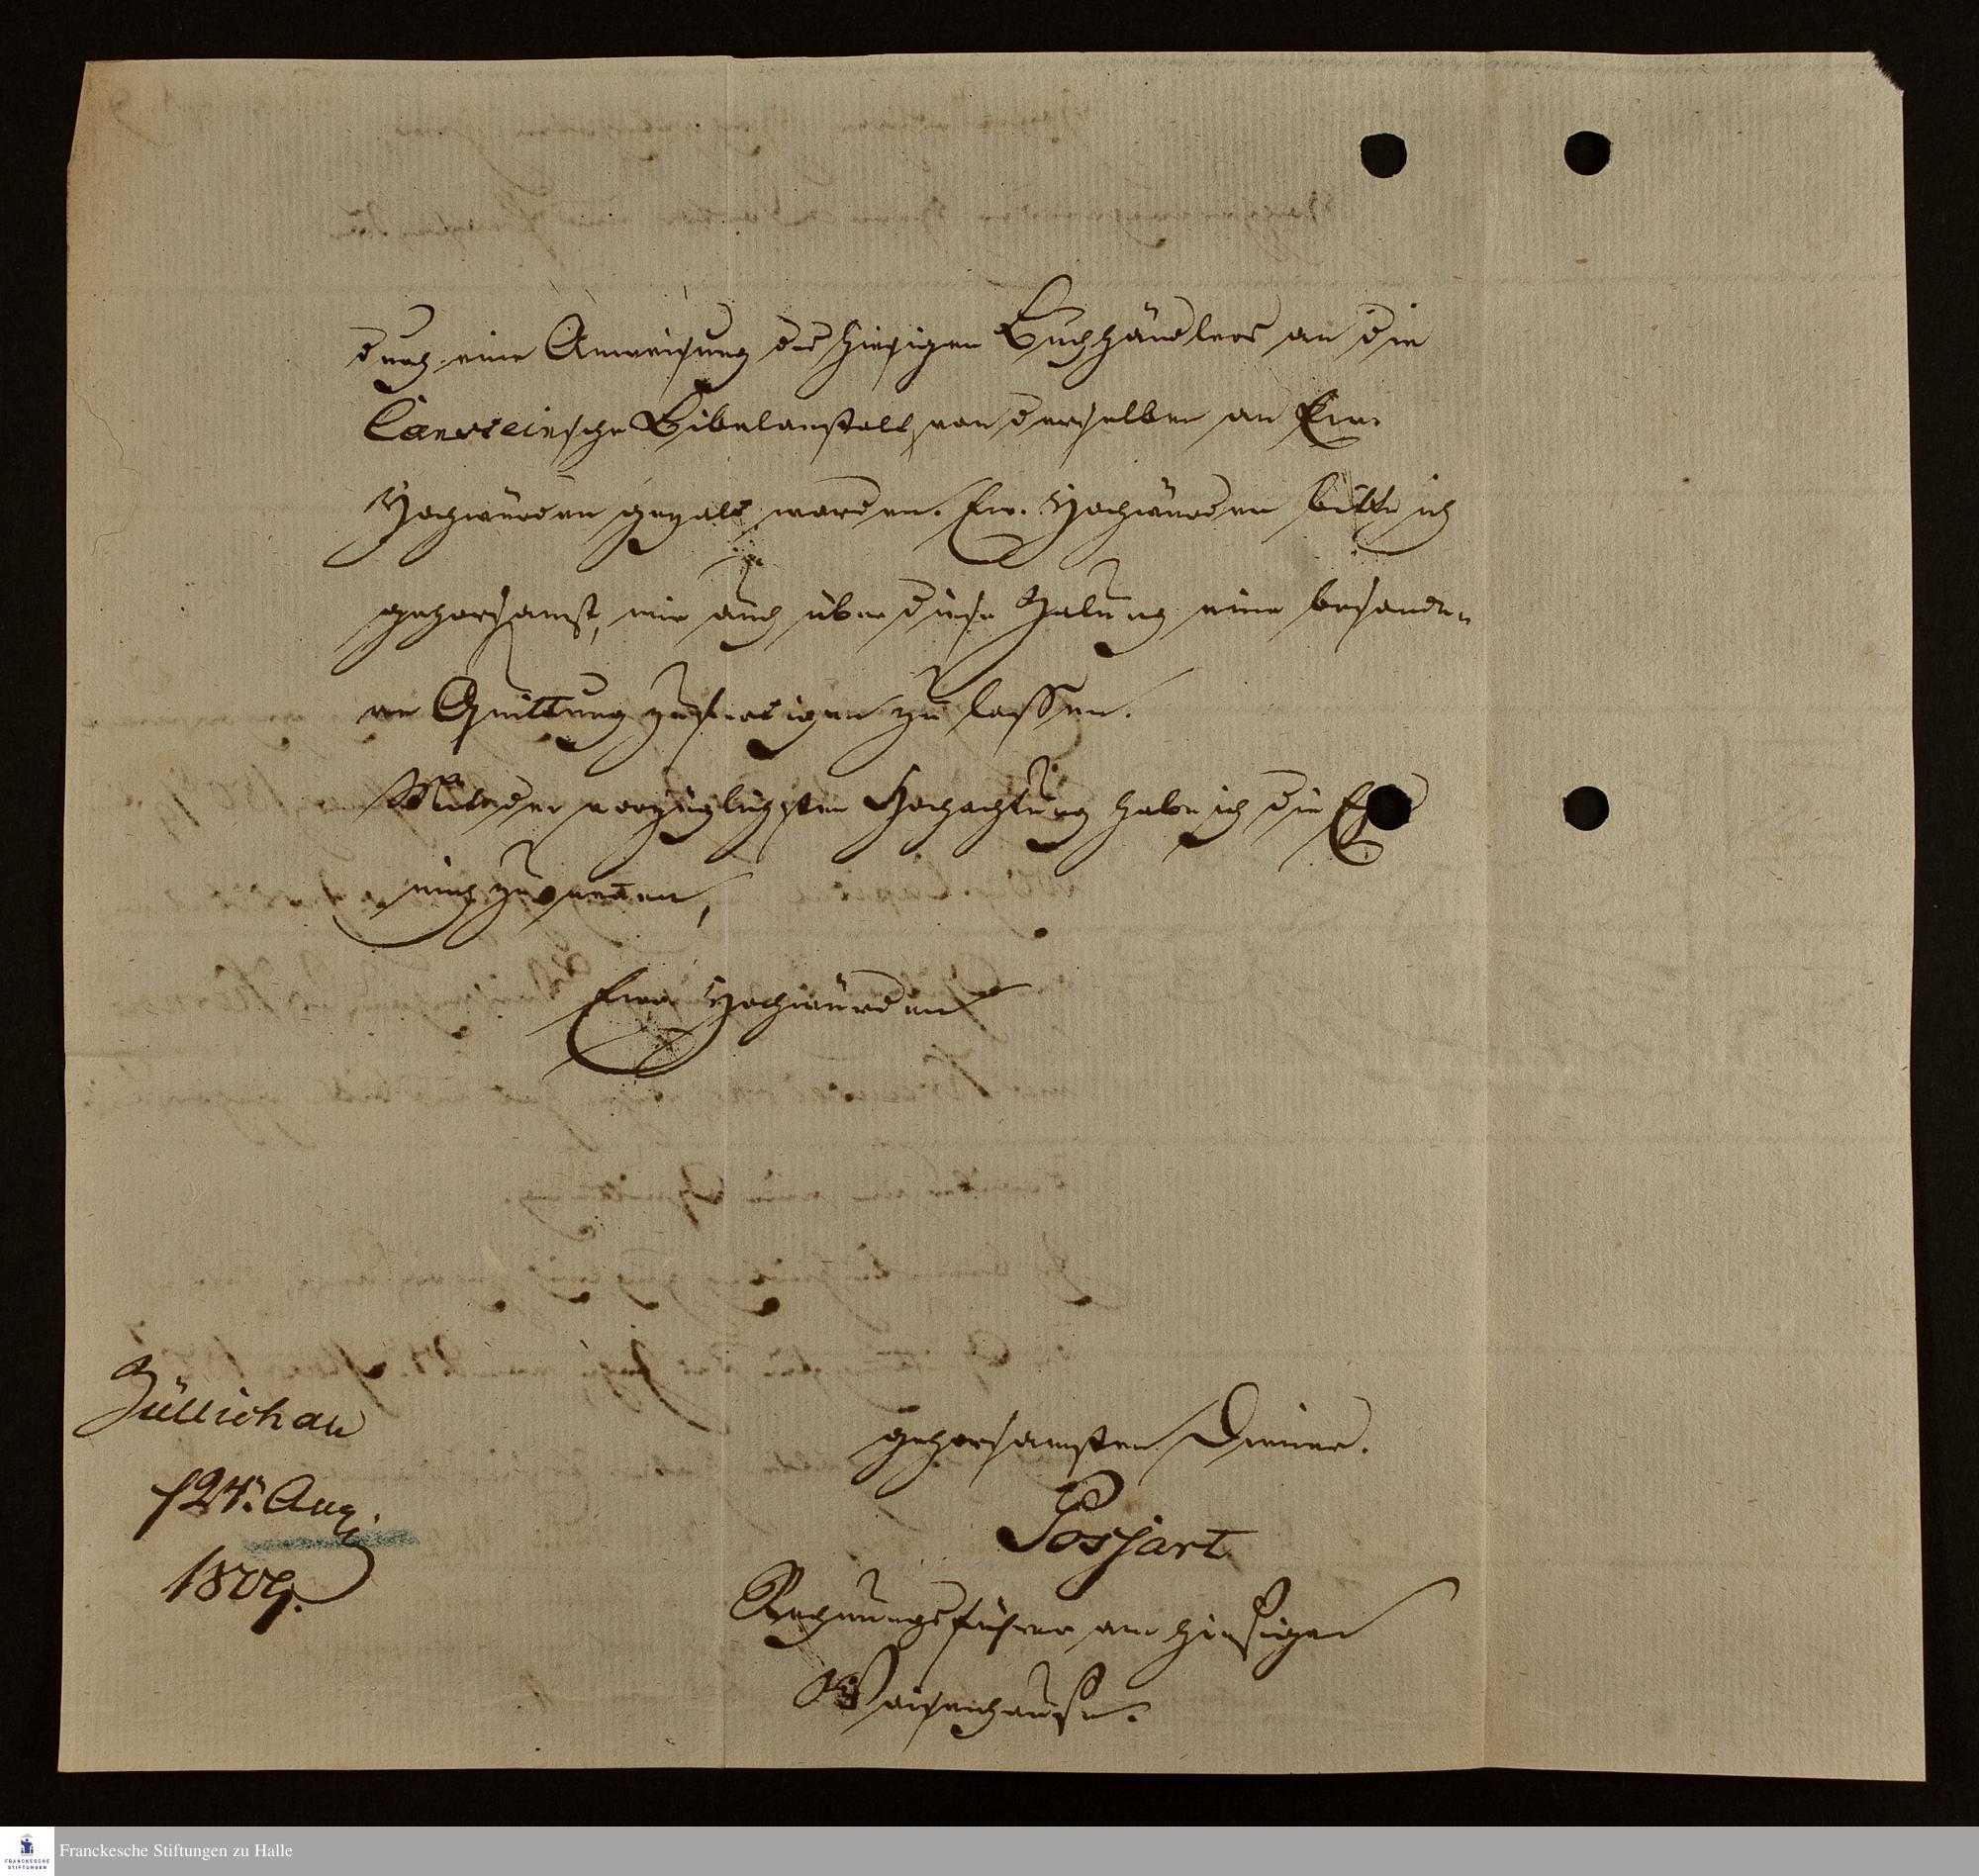 durch eine Anweisung des hiesigen Buchhändlers an die
Cansteinsche Bibelanstalt, von derselben an Ew.
Hochwürden gezalt worden. Ew. Hochwürden bitte ich
gehorsamst, mir auch über diese Zalung eine besonde-
re Quittung zufertigen zu lassen.
Mit der vorzüglichsten Hochachtung habe ich die
mich zu nennen,
Ewr Hochwürden
gehorsamsten Diener.
Possart
Rechnungsführer am hiesigen
Waisenhause.
Züllichau
Aug.
1809.
Franckesche Stiftungen zu Halle
FRANCKESCHE
STIFTUNGEN